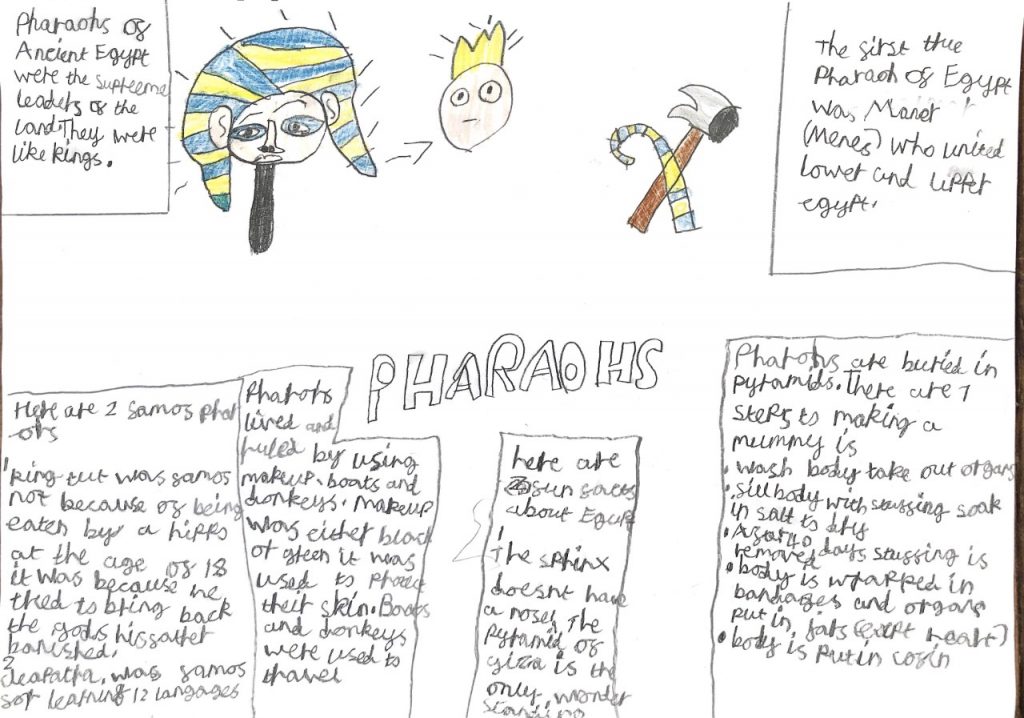 Pharaohs of
Ancient Egypt
were the supreeme
leaders of the
land. They were
like kings.
The first true
Pharaoh of Egypt
was Manet
(Menes) who united
lower and upper
egypt.
PHARAOHS
Here are 2 famos phar
ohs
1 king tut was famos
not because of being
eaten by a hippo
at the age of 18
it was because he
tried to bring back
the gods his father
banished.
2 cleapatra, was famos
for learning 12 langages
Pharohs
lived and
ruled by using
makeup. boats and
donkeys. Makeup
was either black
or green it was
used to protect
their skin. Boats
and donkeys
were used to
travel
here are
2 fun facts
about Egypt
1
The sphinx
doesnt have
a nose, The
pyramid of
giza is the
only, wonder
standing
Pharohs are buried in
pyramids. There are 7
steps to making a
mummy is
• wash body take out organs
• fill body with stuffing soak
in salt to dry
• After 40
days stuffing is
removed
• body is wrapped in
bandages and organs
put in, jars (exept heart)
• body is put in cofin